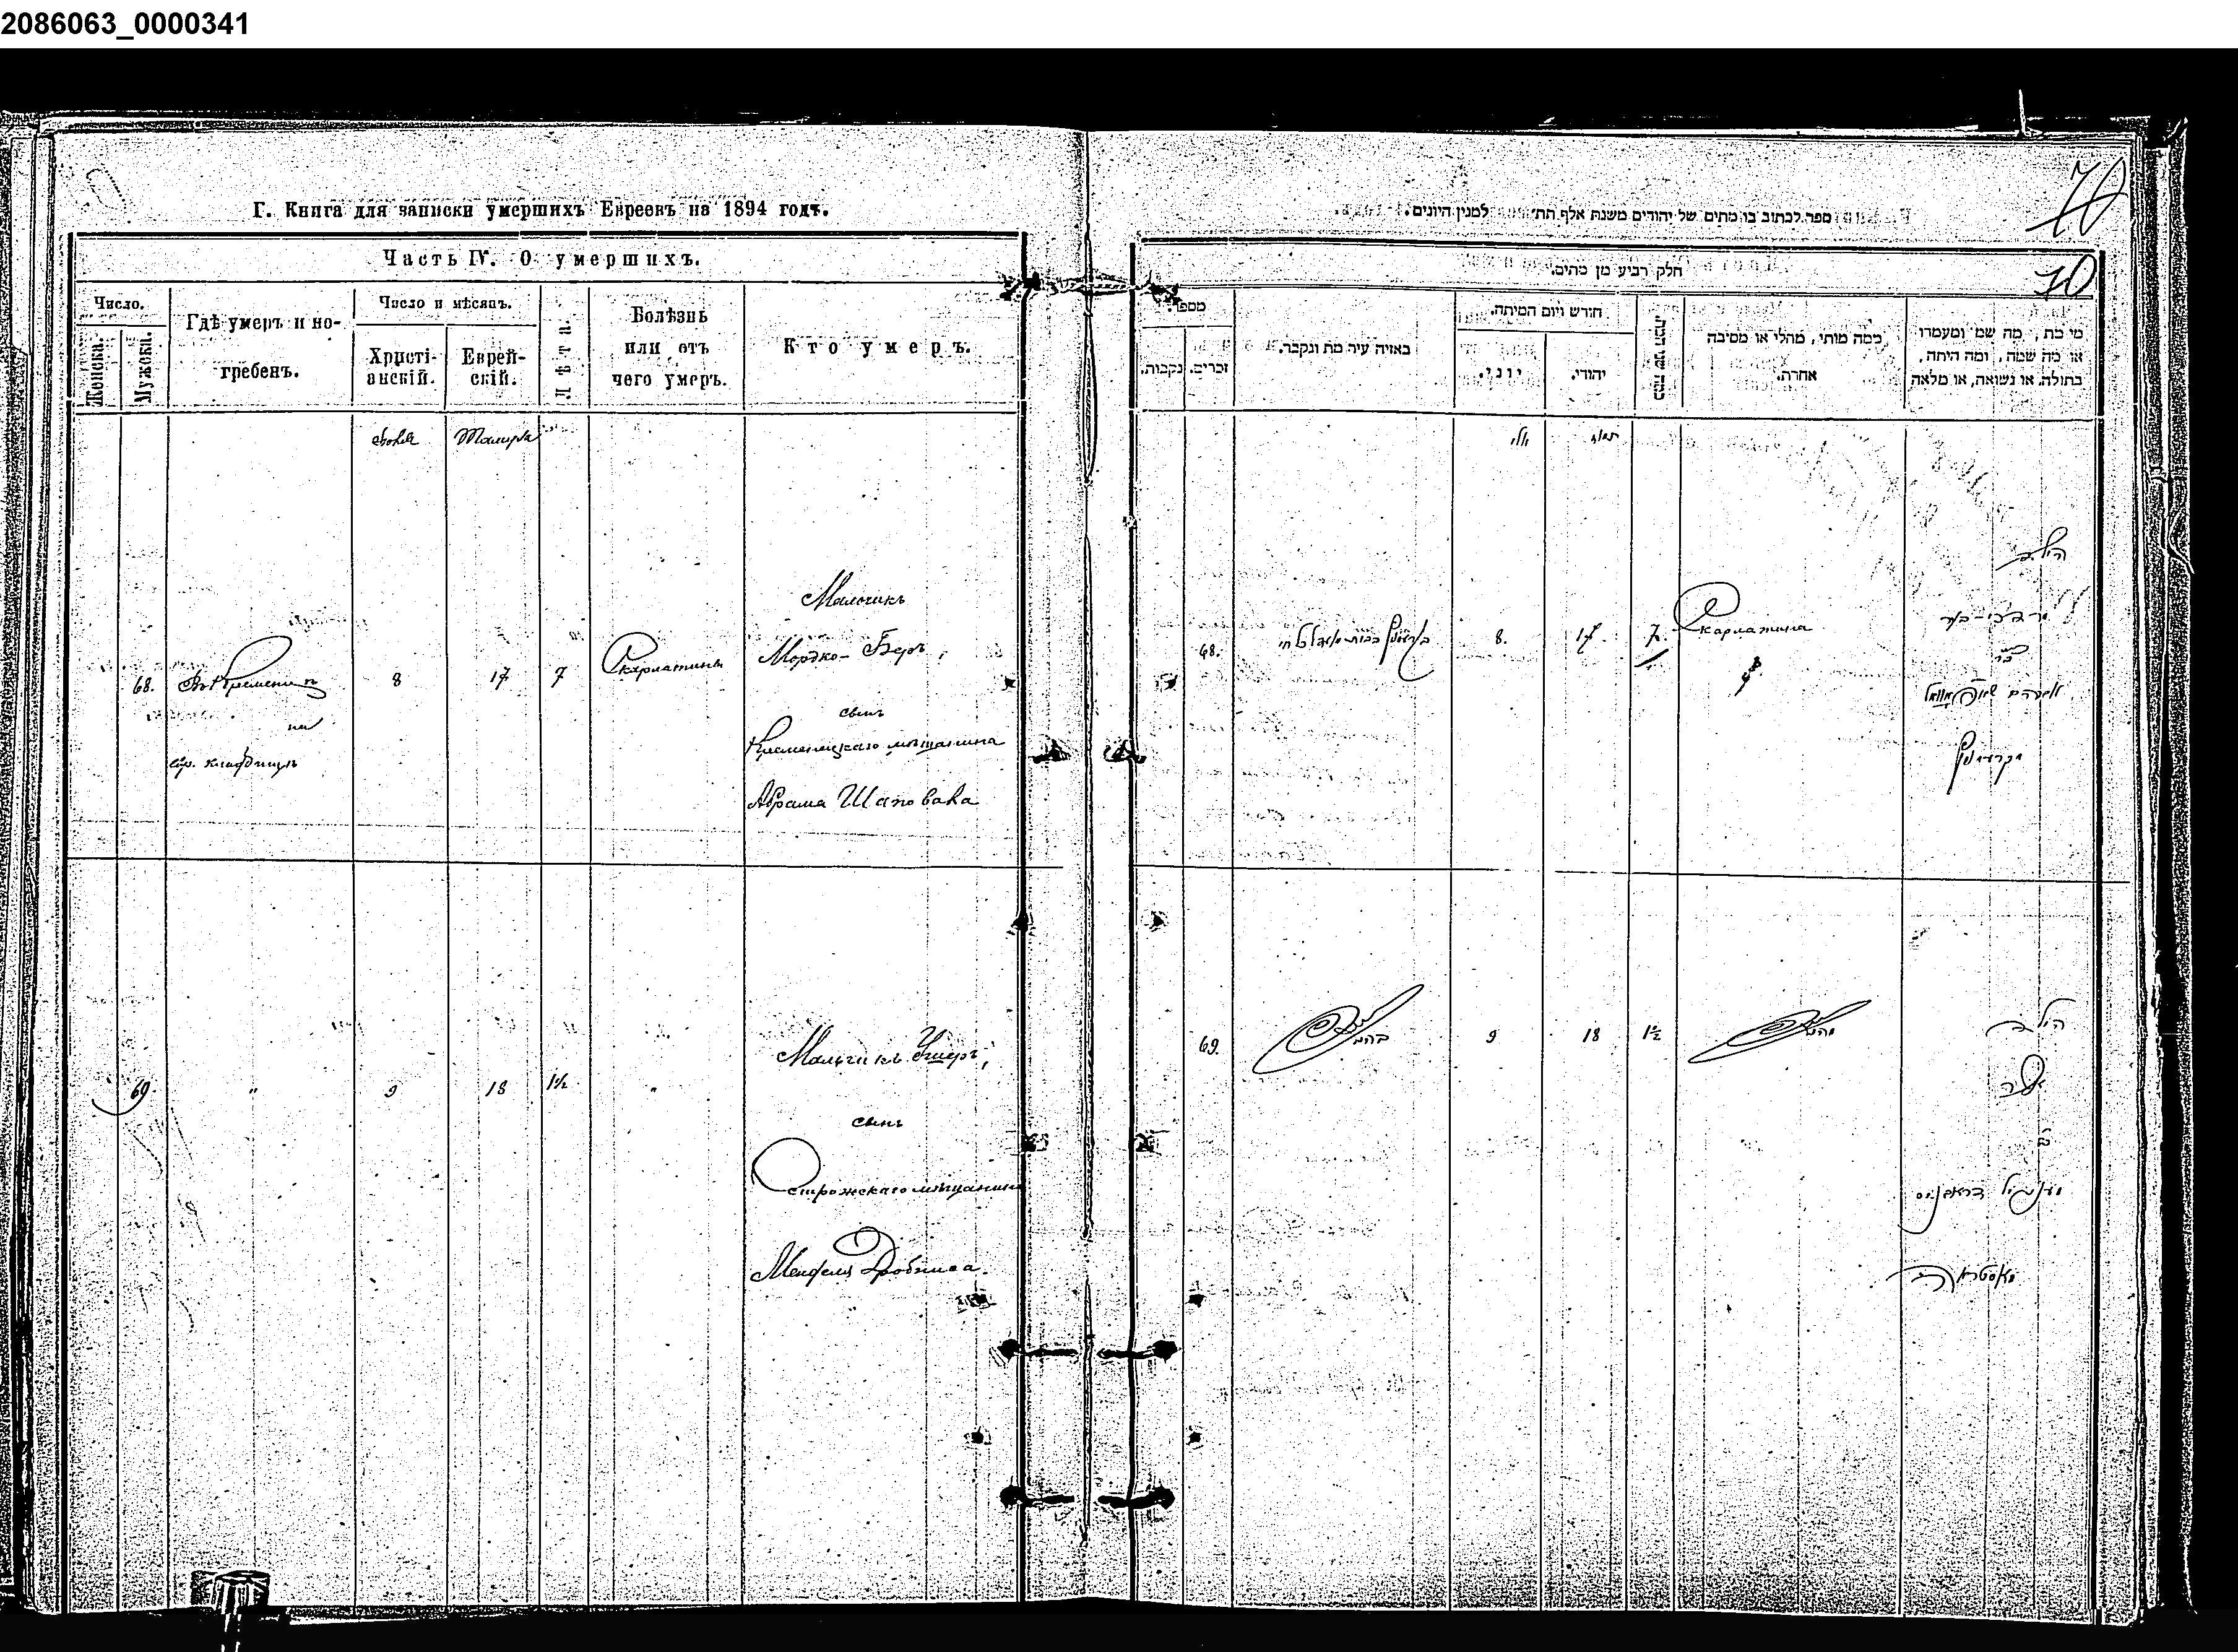 2086063_0000341
Г. Книга для записки умершихъ Евреевъ на 1894 годъ.
Часть IV. О умершихъ.
Число.
Женска.
Мужска.
Гдѣ умеръ и по-
гребенъ.
Число и мѣсяцъ.
Христі-
анскій.
Еврей-
скій.
Лѣта.
Болѣзнь
или отъ
чего умеръ.
Кто умеръ.
Іюля
Тамуза
68.
Въ Кременцѣ
на
евр. кладбищѣ
8
17
7
Скарлатины
Мальчикъ
Мордко-Беръ,
сынъ
Кременецкаго мѣщанина
Абрама Шаповала
69.
"
9
18
1½
"
Мальчикъ Ушеръ,
сынъ
Острожскаго мѣщанина
Менделя Дробниса.
70
ספר לכתוב בו מתים של יהודים משנת אלף תת למנין היונים.
70
חלק רביע מן מתים.
מספר.
נקבות.
זכרים.
באיזה עיר מת ונקבר.
חודש ויום המיתה.
יוני.
יהודי.
כמה שני המת
ממה מותו, מחלי או מסיבה
אחרת.
מי מת, מה שמו ומעמדו
או מה שמה, ומה היתה,
בתולה, או נשואה, או מלאה
יולי
תמוז
68.
8.
17.
7.
Скарлатина
הילד
מרדכי-בער
בר
אברהם
69.
9
18
1½
הילד
אשר